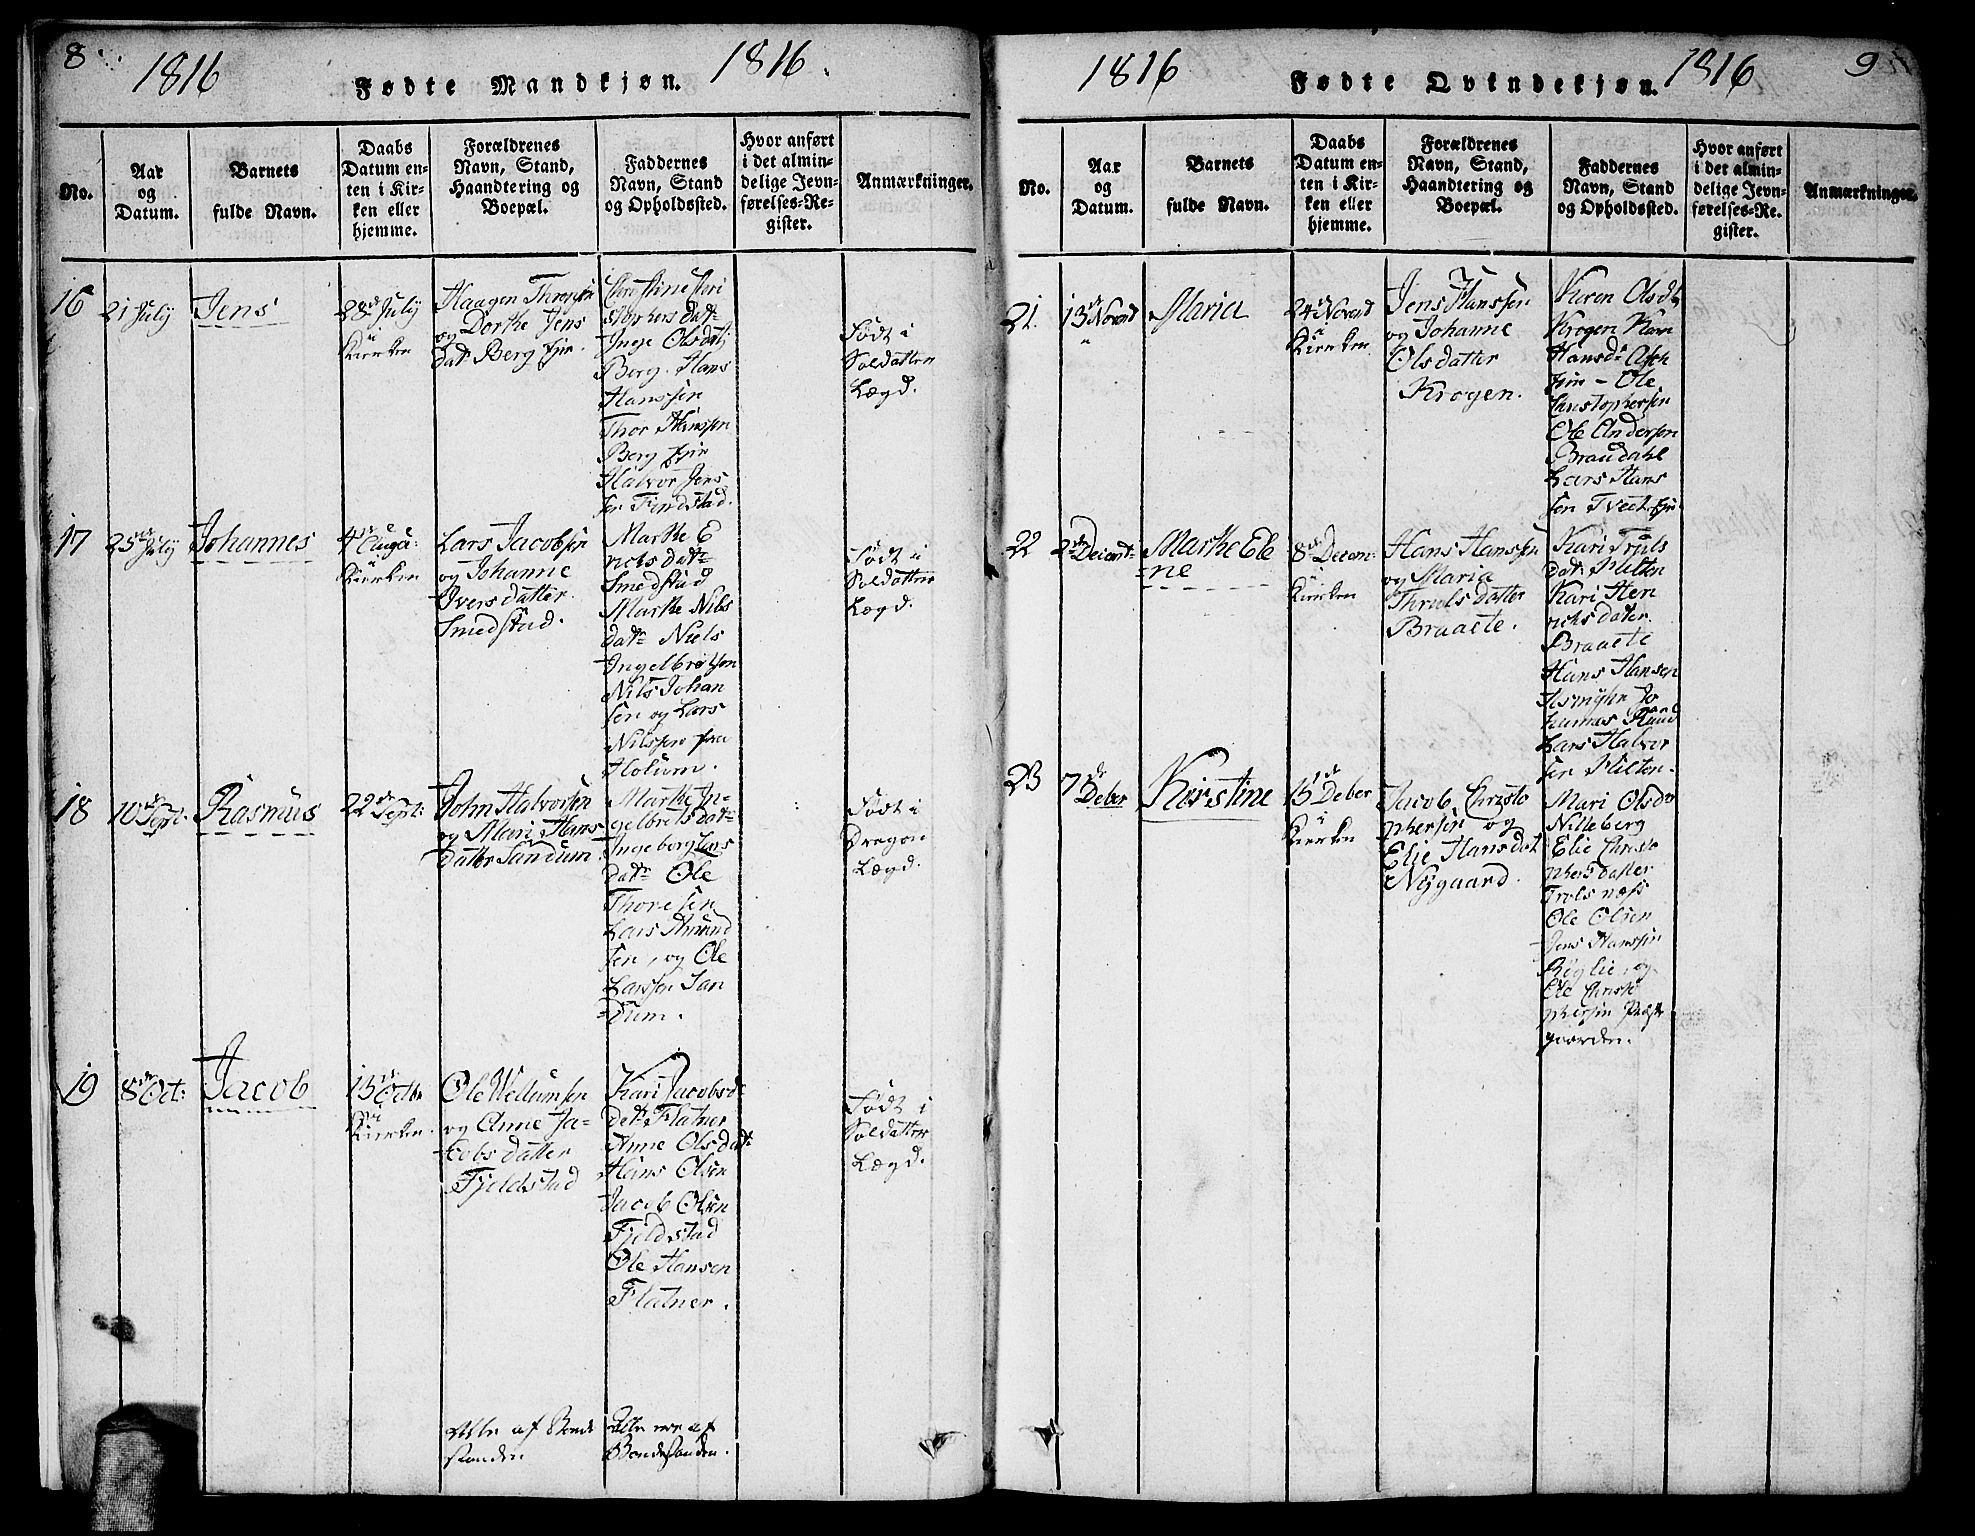 8
1816
Fødte Mandkjøn.
1816
No.
Aar
og
Datum.
Barnets
fulde Navn.
Daabs
Datum en-
ten i Kir-
ken eller
hjemme.
Forældrenes
Navn, Stand,
Haandtering og
Boepæl.
Faddernes
Navn, Stand
og Opholdssted.
Hvor anført
i det almin-
delige Jevn-
førelses-Re-
gister.
Anmærkninger.
16
21 July
Jens
28de July
i
Kierken
Haagen
og Dorthe Jens
datr Berg
Christine Kri
stophers datr
Inge Olsdatr
Berg. Hans
Hanssen
Thor Hanssen
Berg
Halvor Jens
sen Findstad.
Født i
Soldatter
Lægd.
17
25de July
Johannes
4de Auge:
Kierken
Lars Jacobsen
og Johanne
Ivers datter
Smedstad.
Marthe E
richs datr
Smedstad
Marthe Nils
datr Niels
Ingelbretsen
Nils Johan
sen og Lars
Nilssen fra
Holum.
Født i
Soldatter
Lægd.
18
10de Sept:
Rasmus
22de Sept:
John Halvorsen
og Mari Hans
datter Sandum.
Marthe In-
gelbrets datr
Ingeborg Lars
datr Ole
Thoresen
Lars Amund
sen, og Ole
Larssen San
dum.
Født i
Dragon
Lægd.
19
8de Oct:
Jacob
13de Octb
i
Kierken.
Ole Wellumsen
og Anne Ja-
cobs datter
Fjeldstad
Kari Jacobsd
datr Flatner
Anne Olsdatr
Hans Olsen
Jacob Olsen
Fjeldstad
Ole Hansen
Flatner.
Født i
Soldatter
Lægd.
Alle af Bonde
standen
Alle ere af
Bondestanden.
1816
Fødte Qvindekjøn.
1816
9
No.
Aar
og
Datum.
Barnets
fulde Navn.
Daabs
Datum en-
ten i Kir-
ken eller
hjemme.
Forældrenes
Navn, Stand,
Haandtering og
Boepæl.
Faddernes
Navn, Stand
og Opholdssted.
Hvor anført
i det almin-
delige Jevn-
førelses-Re-
gister.
Anmærkninger.
21.
13de Novbd
Maria
24de Novbd
i
Kierken
Jens Hanssen
og Johanne
Olsdatter
Krogen.
Karen Olsdtr
Krogen Karn
Hansdr
Ole
Christophersen
Ole Andersen
Braadahl
Lars Hans
sen Tveit
22
2den Decemb:
Marthe Ele
ne
8de Decem:
i
Kierken
Hans Hanssen
og Maria
Thruls datter
Braaete.
Kari Truls
datr Melten
Kari Hen
richs datter
Braaete
Hans Hansen
Jo
hannes Raad
Lars Halvor
sen Melten.
23
7de Deber
Kirstine
15de Deber
i
Kierken
Jacob Christo
phersen og
Elie Hansdat
Nygaard.
Mari Olsdr
Nilleberg
Elie Christo
phers datter
Trolsnæss
Ole Olsen
Jens Hanssen
Røglie, og
Ole Christo
phersen Præste
gaarden.